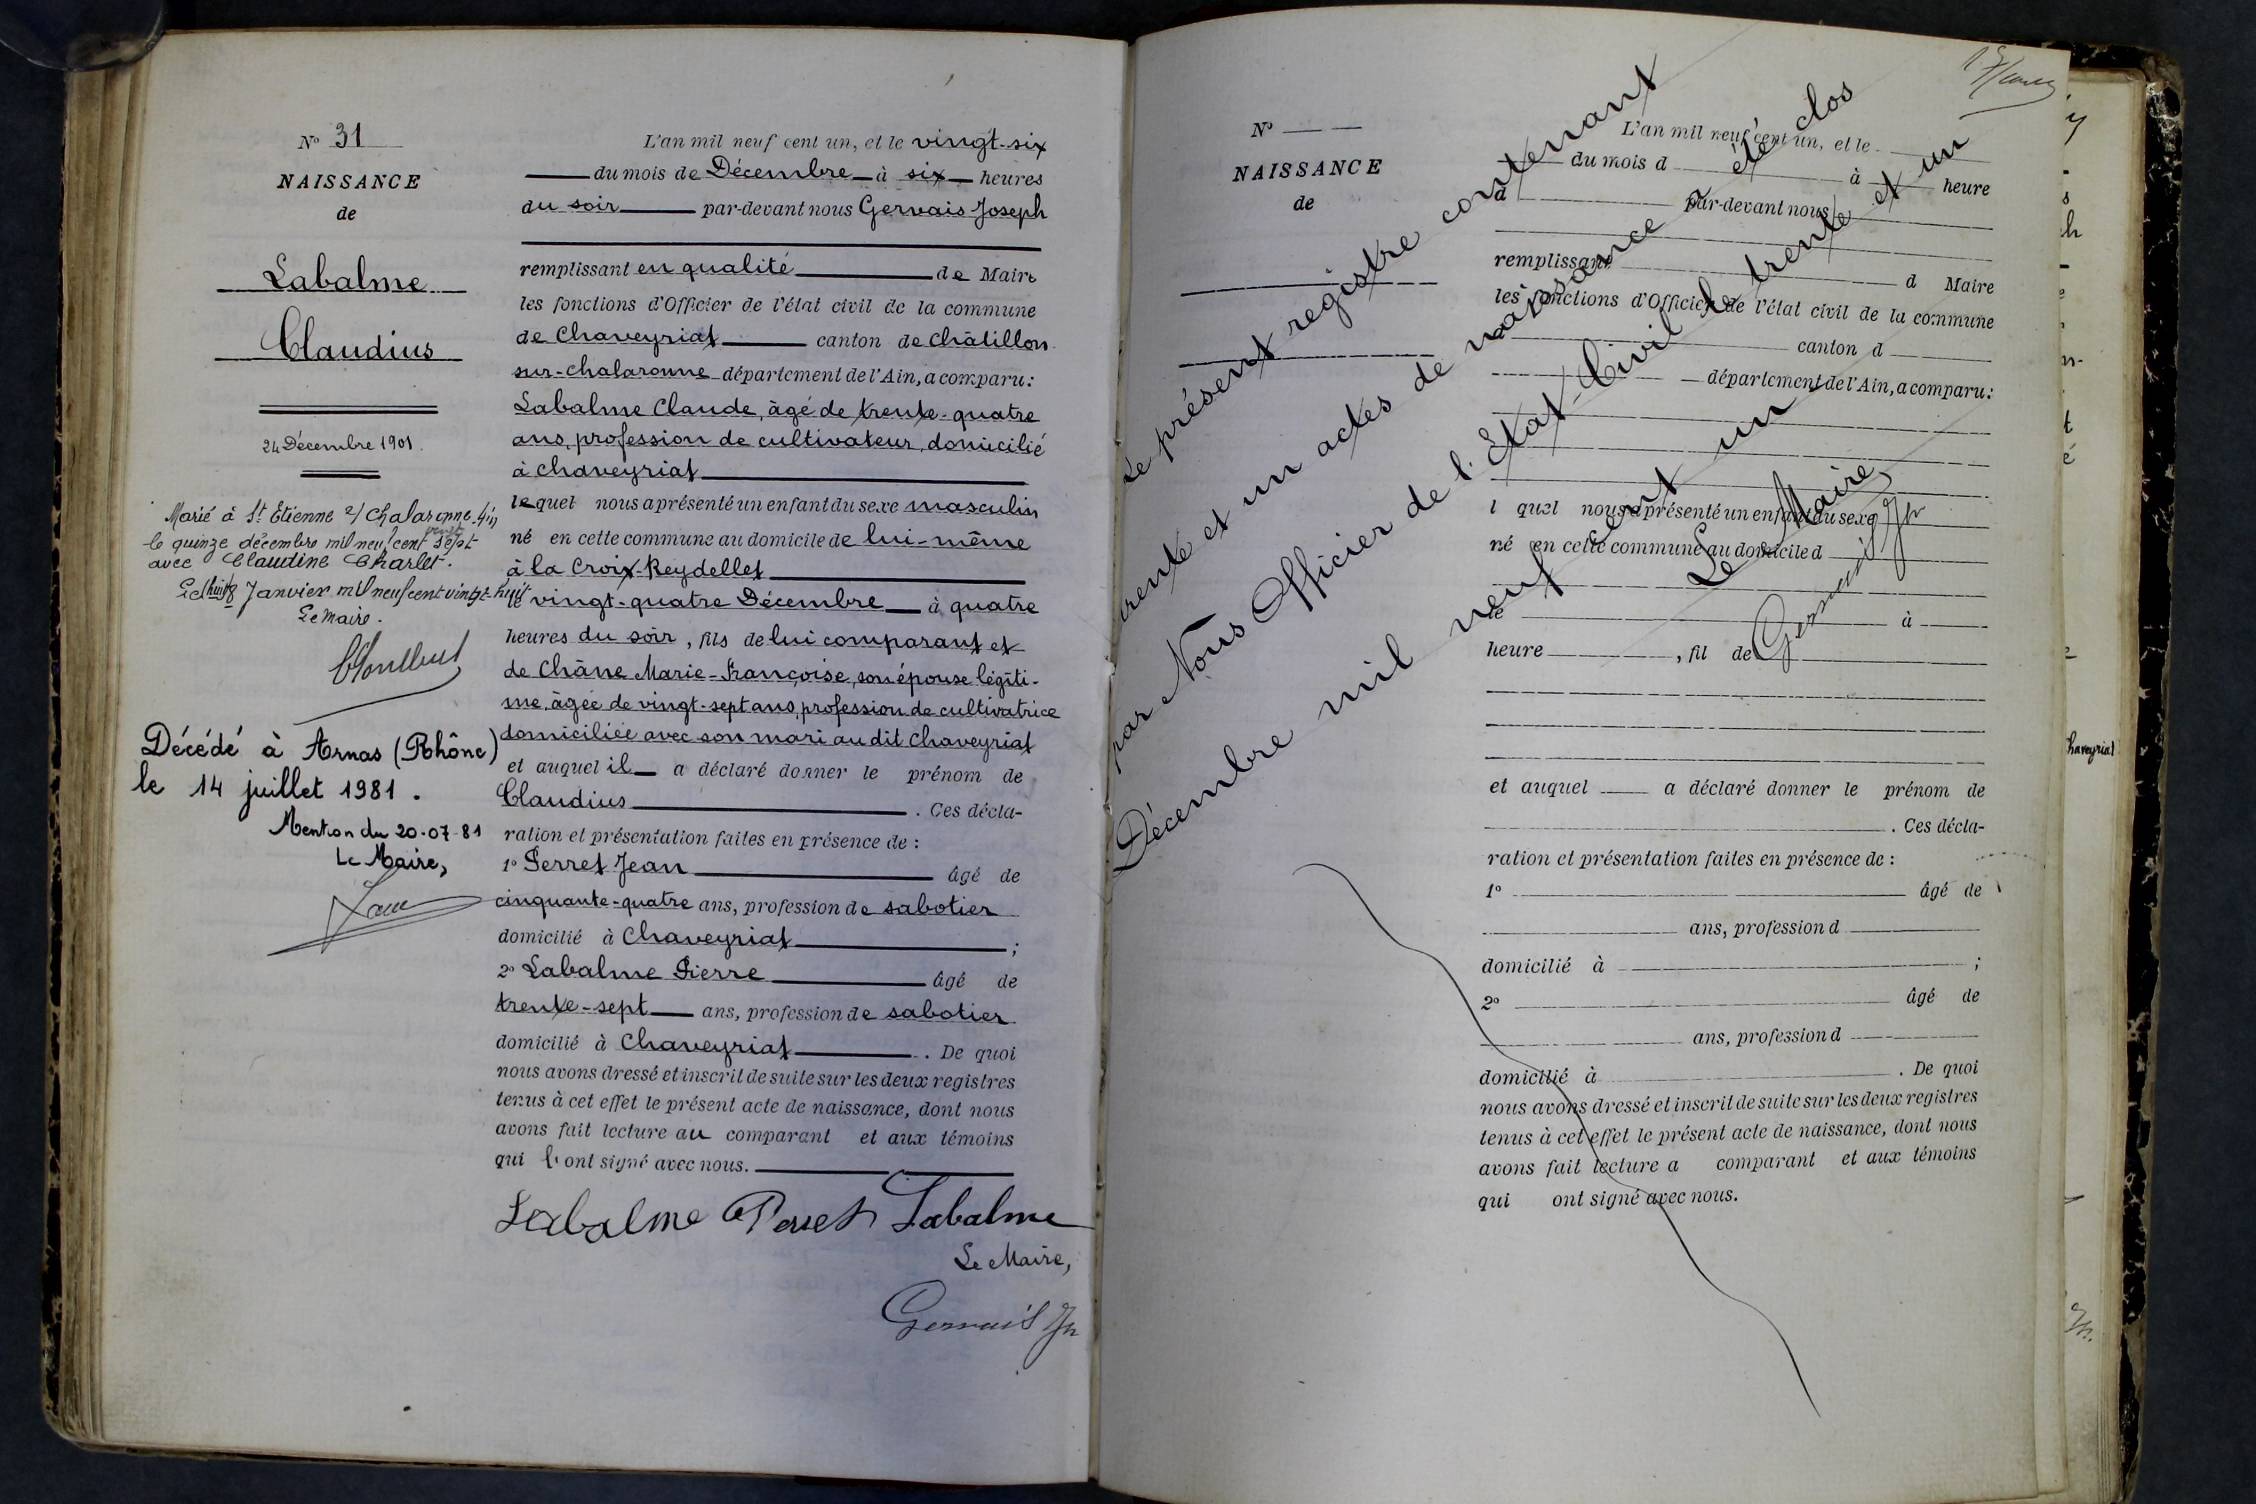 N° 31
NAISSANCE
de
Labalme
Claudius
24 Décembre 1901.
Marié à St Etienne s/ Chalaronne Ain
le quinze décembre mil neuf cent vingt sept
avec Claudine Charlet.
Le huit Janvier mil neuf cent vingt-huit
Le Maire.
Décédé à Arnas (Rhône)
le 14 juillet 1981.
Mention du 20-07-81
Le Maire,
L'an mil neuf cent un, et le vingt-six
du mois de Décembre à six heures
du soir par-devant nous Gervais Joseph
remplissant en qualité de Maire
les fonctions d'Officier de l'état civil de la commune
de Chaveyriat canton de Châtillon
sur-Chalaronne département de l'Ain, a comparu:
Labalme Claude, âgé de trente-quatre
ans, profession de cultivateur, domicilié
à Chaveyriat
lequel nous a présenté un enfant du sexe masculin
né en cette commune au domicile de lui-même
à la Croix-Reydellet
le vingt-quatre Décembre à quatre
heures du soir, fils de lui comparant et
de Châne Marie-Françoise, son épouse légiti-
me, âgée de vingt-sept ans, profession de cultivatrice
domiciliée avec son mari au dit Chaveyriat
et auquel il a déclaré donner le prénom de
Claudius . Ces décla-
ration et présentation faites en présence de :
1° Perret Jean âgé de
cinquante-quatre ans, profession de sabotier
domicilié à Chaveyriat ;
2° Labalme Pierre âgé de
trente-sept ans, profession de sabotier
domicilié à Chaveyriat . De quoi
nous avons dressé et inscrit de suite sur les deux registres
tenus à cet effet le présent acte de naissance, dont nous
avons fait lecture au comparant et aux témoins
qui l'ont signé avec nous.
Labalme Perret Labalme
Le Maire,
Gervais Jh
N°
NAISSANCE
de
L'an mil neuf cent un, et le
du mois d à heure
d par-devant nous
remplissant d Maire
les fonctions d'Officier de l'état civil de la commune
canton d
département de l'Ain, a comparu:
l quel nous a présenté un enfant du sexe
né en cette commune au domicile d
le à
heure , fil de
et auquel a déclaré donner le prénom de
. Ces décla-
ration et présentation faites en présence de :
1° âgé de
ans, profession d
domicilié à ;
2° âgé de
ans, profession d
domicilié à . De quoi
nous avons dressé et inscrit de suite sur les deux registres
tenus à cet effet le présent acte de naissance, dont nous
avons fait lecture a comparant et aux témoins
qui ont signé avec nous.
Le présent registre contenant
trente et un actes de naissance a été clos
par Nous Officier de l'Etat-Civil le trente et un
Décembre mil neuf cent un
Le Maire,
Gervais Jh
Chaveyriat